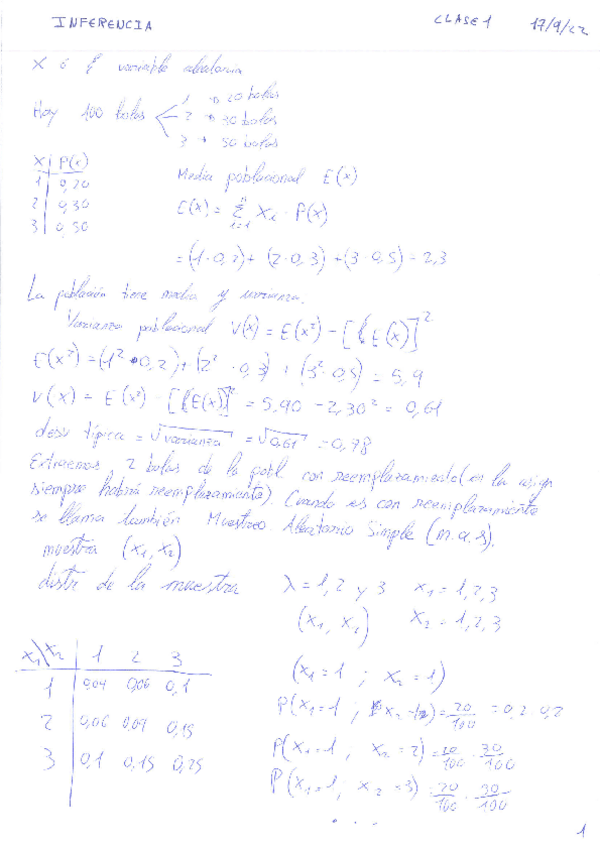 INFERENCIA CLASE 1 17/9/22
X ó ξ variable aleatoria
Hay 100 bolas
1 → 20 bolas
2 → 30 bolas
3 → 50 bolas
X | P(x)
1 | 0,20
2 | 0,30
3 | 0,50
Media poblacional E(x)
E(x) = Σ i=1 Xi · P(x)
= (1·0,2) + (2·0,3) + (3·0,5) = 2,3
La población tiene media y varianza.
Varianza poblacional V(x) = E(x²) - [E(x)]²
E(x²) = (1²·0,2) + (2²·0,3) + (3²·0,5) = 5,9
V(x) = E(x²) - [E(x)]² = 5,90 - 2,30² = 0,61
desv típica = √varianza = √0,61 = 0,78
Extraemos 2 bolas de la pobl con reemplazamiento (en la asign
siempre habrá reemplazamiento). Cuando es con reemplazamiento
se llama también Muestreo Aleatorio Simple (m.a.s).
muestra (x1, x2)
distr de la muestra λ = 1,2 y 3 x1 = 1,2,3
(x1, x2) x2 = 1,2,3
x1\x2 | 1 2 3
1 | 0,04 0,06 0,1
2 | 0,06 0,09 0,15
3 | 0,1 0,15 0,25
(x1=1 ; x2=1)
P(x1=1 ; x2=1) = 20/100 = 0,2·0,2
P(x1=1 ; x2=2) = 20/100 · 30/100
P(x1=1 ; x2=3) = 20/100 · 30/100
. . . .
1